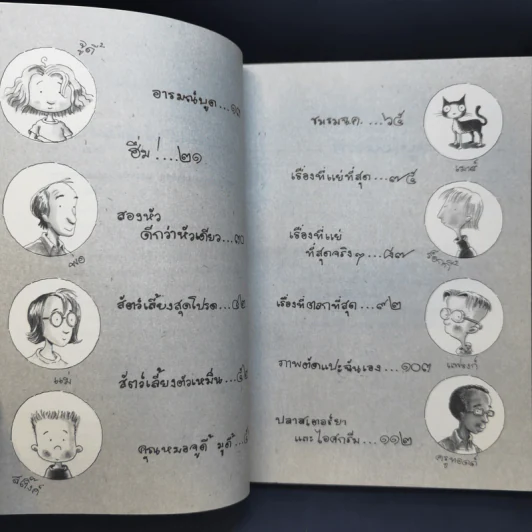 จูดี้
อารมณ์บูด...๑๓
ฮึ่ม!....๒๑
สองหัว
ดีกว่าหัวเดียว...๓๐
พ่อ
สัตว์เลี้ยงสุดโปรด...๔๒
แม่
สัตว์เลี้ยงตัวเหม็น...
คุณหมอจูดี้ มูดี้...
สติ๊งค์
ชมรมฉ.ค. ...๖๕
เมาส์
เรื่องที่แย่ที่สุด...๗๕
เรื่องที่แย่
ที่สุดจริงๆ...๘๗
ร็อกกี้
เรื่องที่ตลกที่สุด...๙๒
แฟรงก์
ภาพตัดแปะฉันเอง...๑๐๓
ปลาสเตอร์ยา
และไอศกรีม...๑๑๒
ครูทอดด์